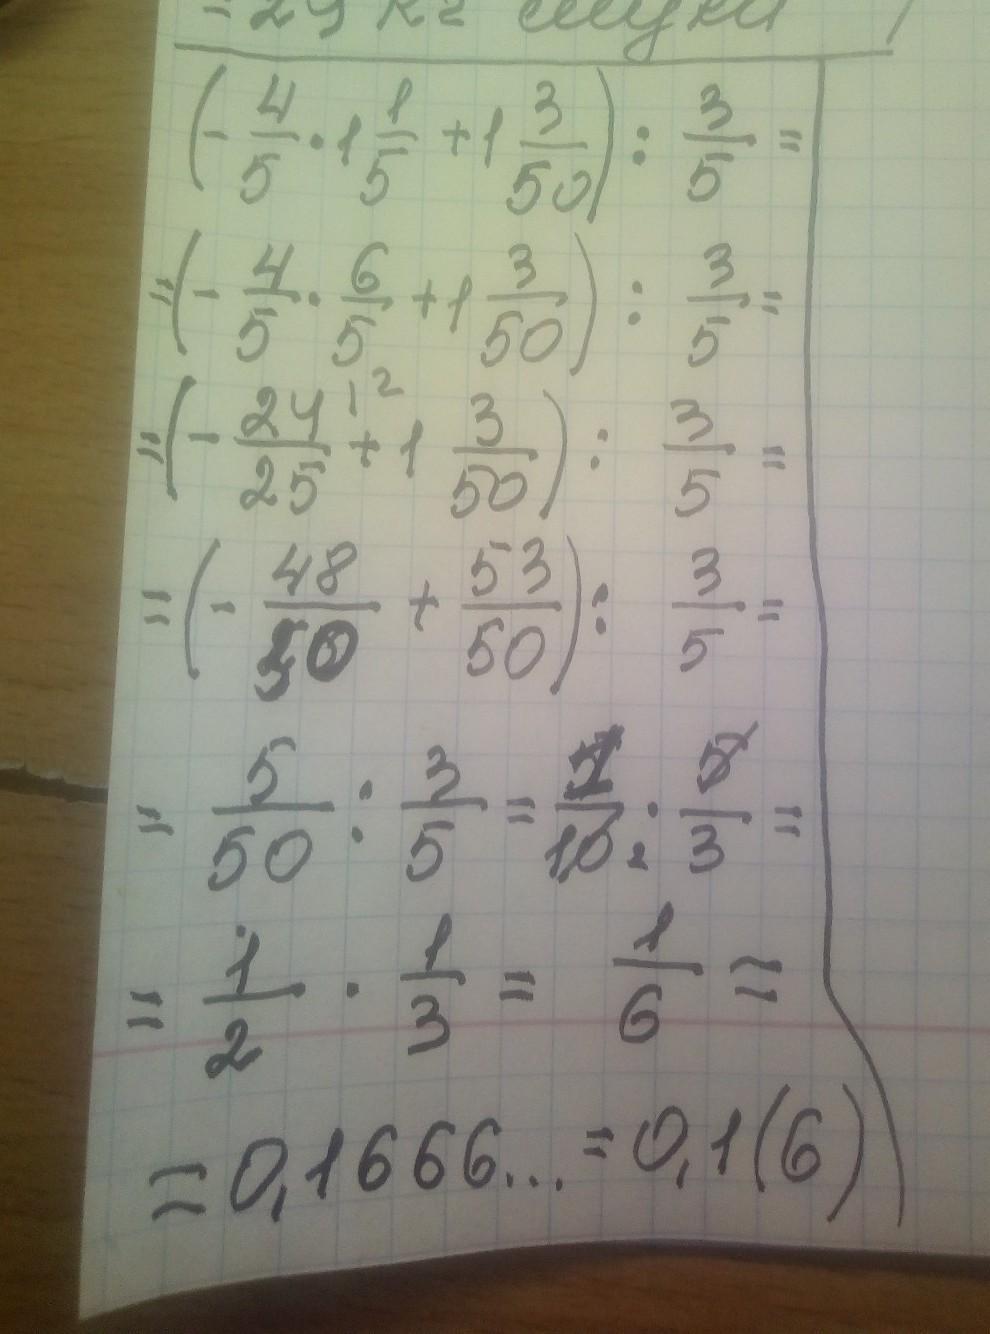 = 24 кг муки
(- 4/5 · 1 1/5 + 1 3/50) : 3/5 =
= (- 4/5 · 6/5 + 1 3/50) : 3/5 =
= (- 24/25 \2 + 1 3/50) : 3/5 =
= (- 48/50 + 53/50) : 3/5 =
= 5/50 : 3/5 = 1/10 2 · 5/3 =
= 1/2 · 1/3 = 1/6 =
= 0,1666... = 0,1(6)